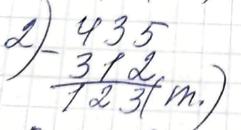 2) - 435
312
123 (т.)